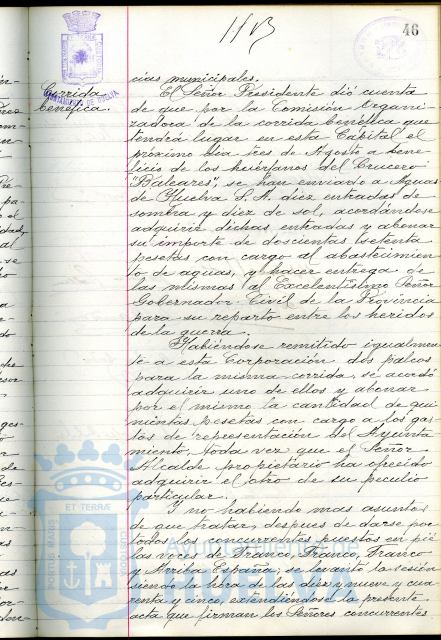 46
Corrida
benéfica.
AYUNTAMIENTO DE HUELVA
cias municipales.
El Señor Presidente dió cuenta
de que por la Comisión Organi-
zadora de la corrida benéfica que
tendrá lugar en esta Capital el
próximo día tres de Agosto a bene-
ficio de los huérfanos del Crucero
"Baleares", se han enviado a Aguas
de Huelva S.A. diez entradas de
sombra y diez de sol, acordándose
adquirir dichas entradas y abonar
su importe de doscientas setenta
pesetas con cargo al abastecimien-
to de aguas, y hacer entrega de
las mismas al Excelentísimo Señor
Gobernador Civil de la Provincia
para su reparto entre los heridos
de la guerra.
Habiéndose remitido igualmen-
te a esta Corporación dos palcos
para la misma corrida, se acordó
adquirir uno de ellos y abonar
por el mismo la cantidad de qui-
nientas pesetas con cargo a los gas-
tos de representación del Ayunta-
miento, toda vez que el Señor
Alcalde propietario ha ofrecido
adquirir el otro de su peculio
particular.
Y no habiendo mas asuntos
de que tratar, despues de darse por
todos los concurrentes puestos en pié
las voces de Franco, Franco, Franco
y Arriba España, se levantó la sesión
siendo la hora de las diez y nueve y cua-
renta y cinco, extendiéndose la presente
acta que firman los Señores concurrentes
PORTUS MARIS ET TERRAE CUSTODIA